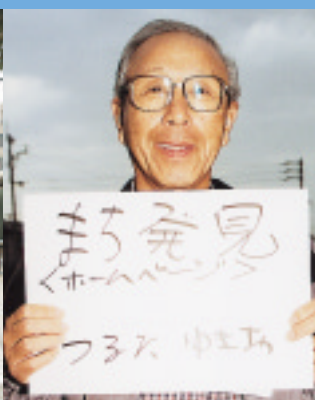 まち発見
<ホームページ>
つるた